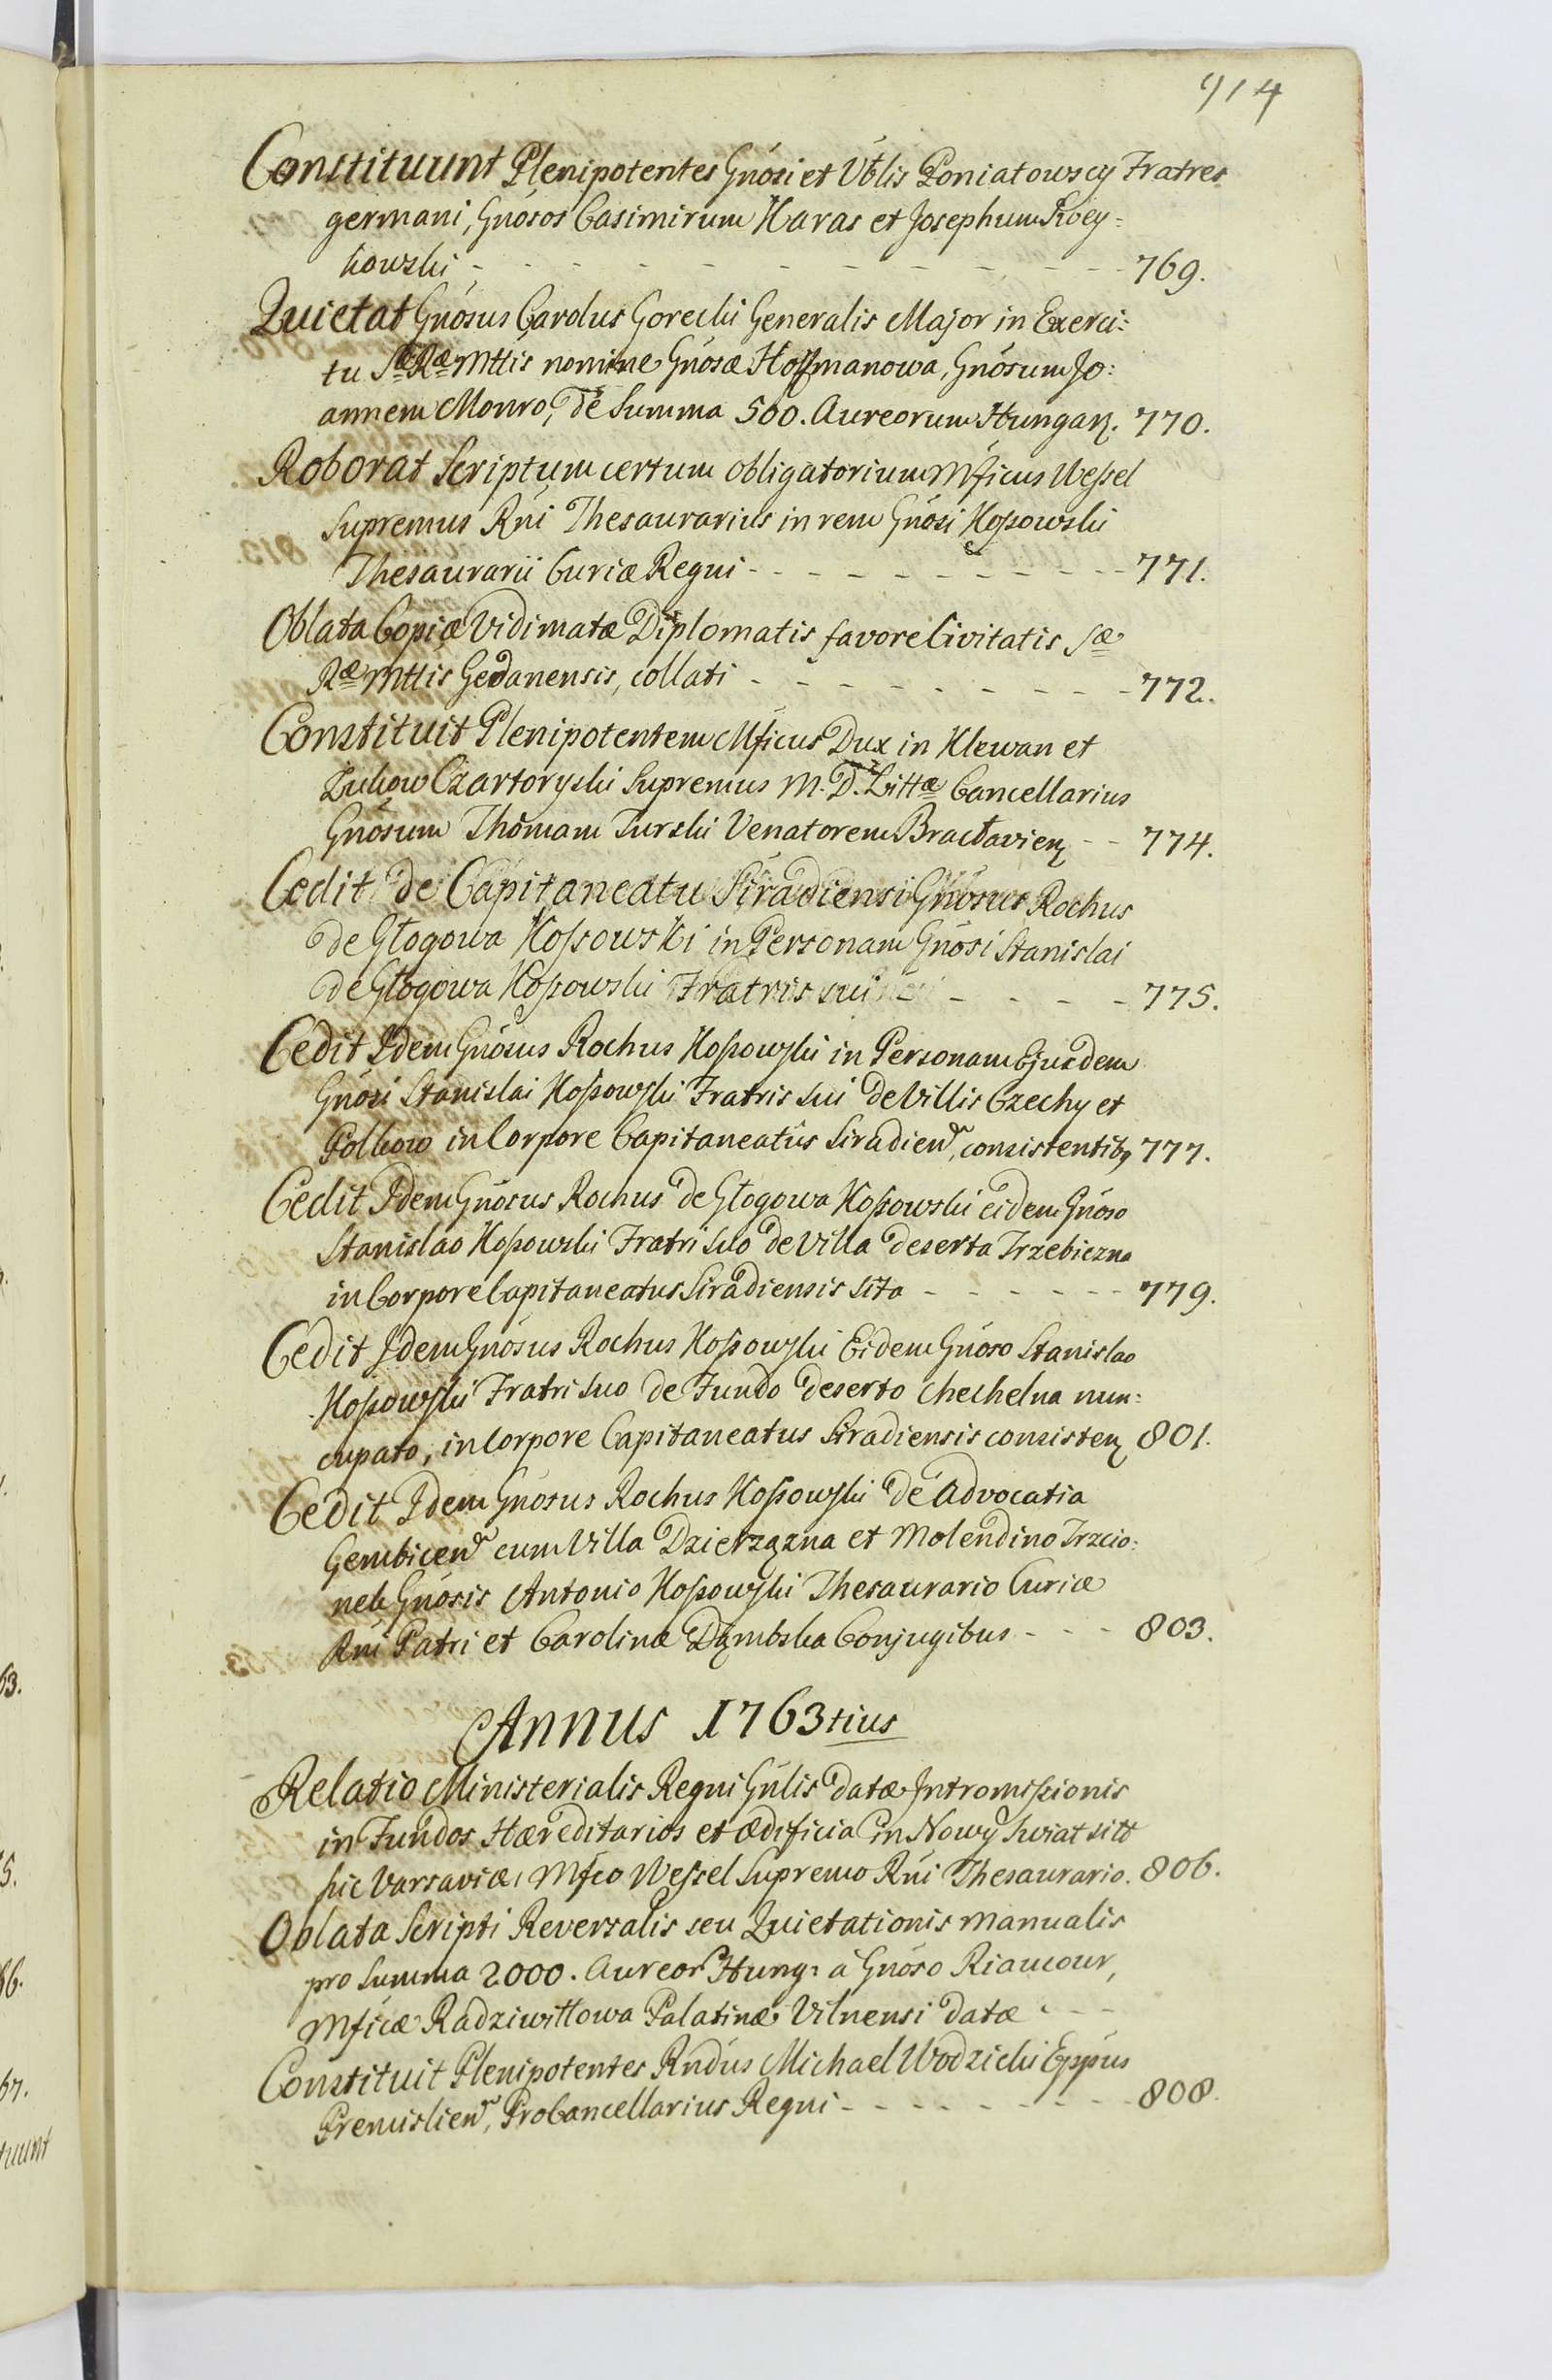 914
Constituunt Plenipotentes Gnósi et Vtlis Poniatowscy Fratres
germani, Gnósos Casimirum Karas et Josephum Roey-
kowski - - - - - - - - - - 769.
Quietat Gnósus Carolus Gorecki Generalis Major in Exerci:
tu Sæ Ræ Mttis nomine Gnósæ Hoffmanowa, Gnósum Jo:
annem Monro, de Summa 500. Aureorum Hungar. 770.
Roborat Scriptum certum obligatorium Mficus Wessel
Supremus Rni Thesaurarius in rem Gnósi Kossowski
Thesaurarii Curiæ Regni - - - - - - - - - 771.
Oblata Copiæ Vidimatæ Diplomatis favore Civitatis Sæ
Ræ Mttis Gedanensis, collati - - - - - - - - - 772.
Constituit Plenipotentem Mficus Dux in Klewan et
Zukow Czartoryski Supremus M. D. Littæ Cancellarius
Gnósum Thomam Turski Venatorem Bractavien - - 774.
Cedit de Capitaneatu Siradiensi Gnósus Rochus
de Głogowa Kossowski in Personam Gnósi Stanislai
de Głogowa Kossowski Fratris sui - - - - 775.
Cedit Idem Gnósus Rochus Kossowski in Personam Ejusdem
Gnósi Stanislai Kossowski Fratris sui de Villis Czechy et
Polkow in Corpore Capitaneatûs Siradien, consistentibq 777.
Cedit Idem Gnósus Rochus de Głogowa Kossowski eidem Gnóso
Stanislao Kossowski Fratri suo de Villa deserta Trzebiezna
in Corpore Capitaneatus Siradiensis sita - - - - - - 779.
Cedit Idem Gnósus Rochus Kossowski Eidem Gnóso Stanislao
Kossowski Fratri suo de Fundo deserto Chechelna nun:
cupato, in Corpore Capitaneatus Siradiensis consisten 801.
Cedit Idem Gnósus Rochus Kossowski de Advocatia
Gembicen cum Villa Dzierzązna et Molendino Trzcio:
nek Gnósis Antonio Kossowski Thesaurario Curiæ
Rni Patri et Carolinæ Dąmbska Conjugibus - - - 803.
Annus 1763tius
Relatio Ministerialis Regni Gńlis datæ Intromissionis
in Fundos Hæreditarios et Ædificia in Nowy Swiat sito
hic Varsaviæ, Mfco Wessel Supremo Rni Thesaurario. 806.
Oblata Scripti Reversalis seu Quietationis manualis
pro Summa 2000. Aureor Hung: á Gnóso Riaucour,
Mficæ Radziwiłłowa Palatinæ Vilnensi datæ - - -
Constituit Plenipotentes Rndus Michael Wodzicki Eppus
Premislien, ProCancellarius Regni - - - - - - - - - 808.